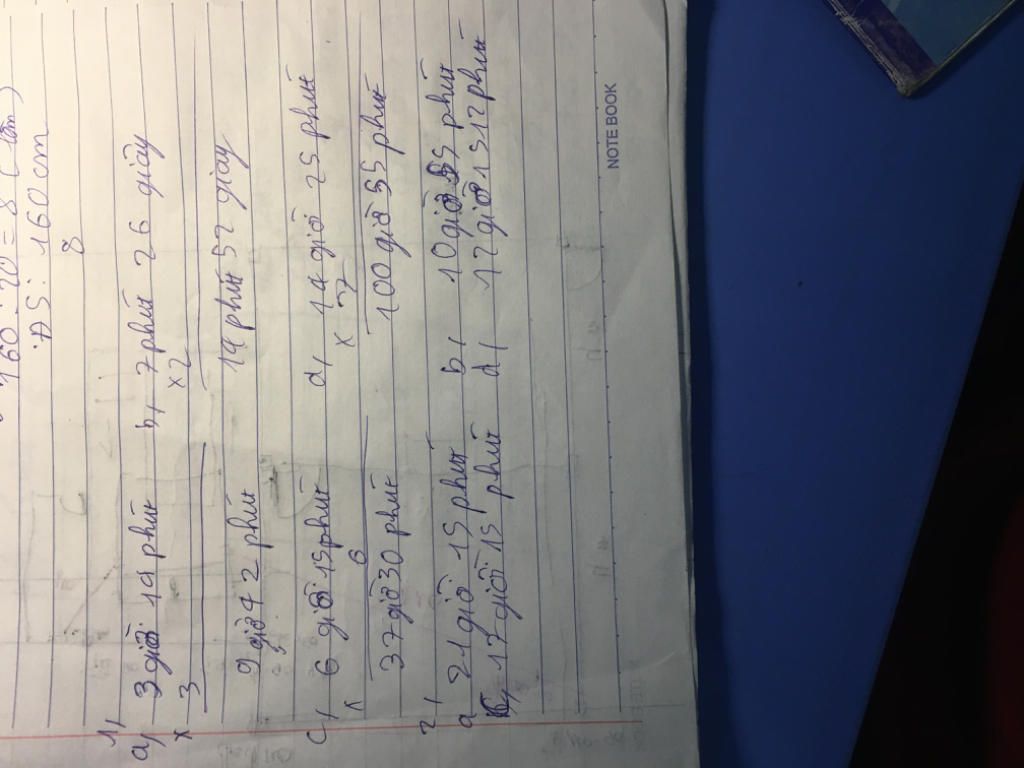 160 : 20 = 8 (cm)
ĐS: 160cm
8
1/
a, 3 giờ 14 phút b, 7 phút 26 giây
x 3 x 2
9 giờ 42 phút 14 phút 52 giây
c/ 6 giờ 15 phút d/ 14 giờ 25 phút
x 6 x 7
37 giờ 30 phút 100 giờ 55 phút
2/
a 21 giờ 15 phút b/ 10 giờ 35 phút
c, 17 giờ 15 phút d/ 12 giờ 15 12 phút
NOTEBOOK